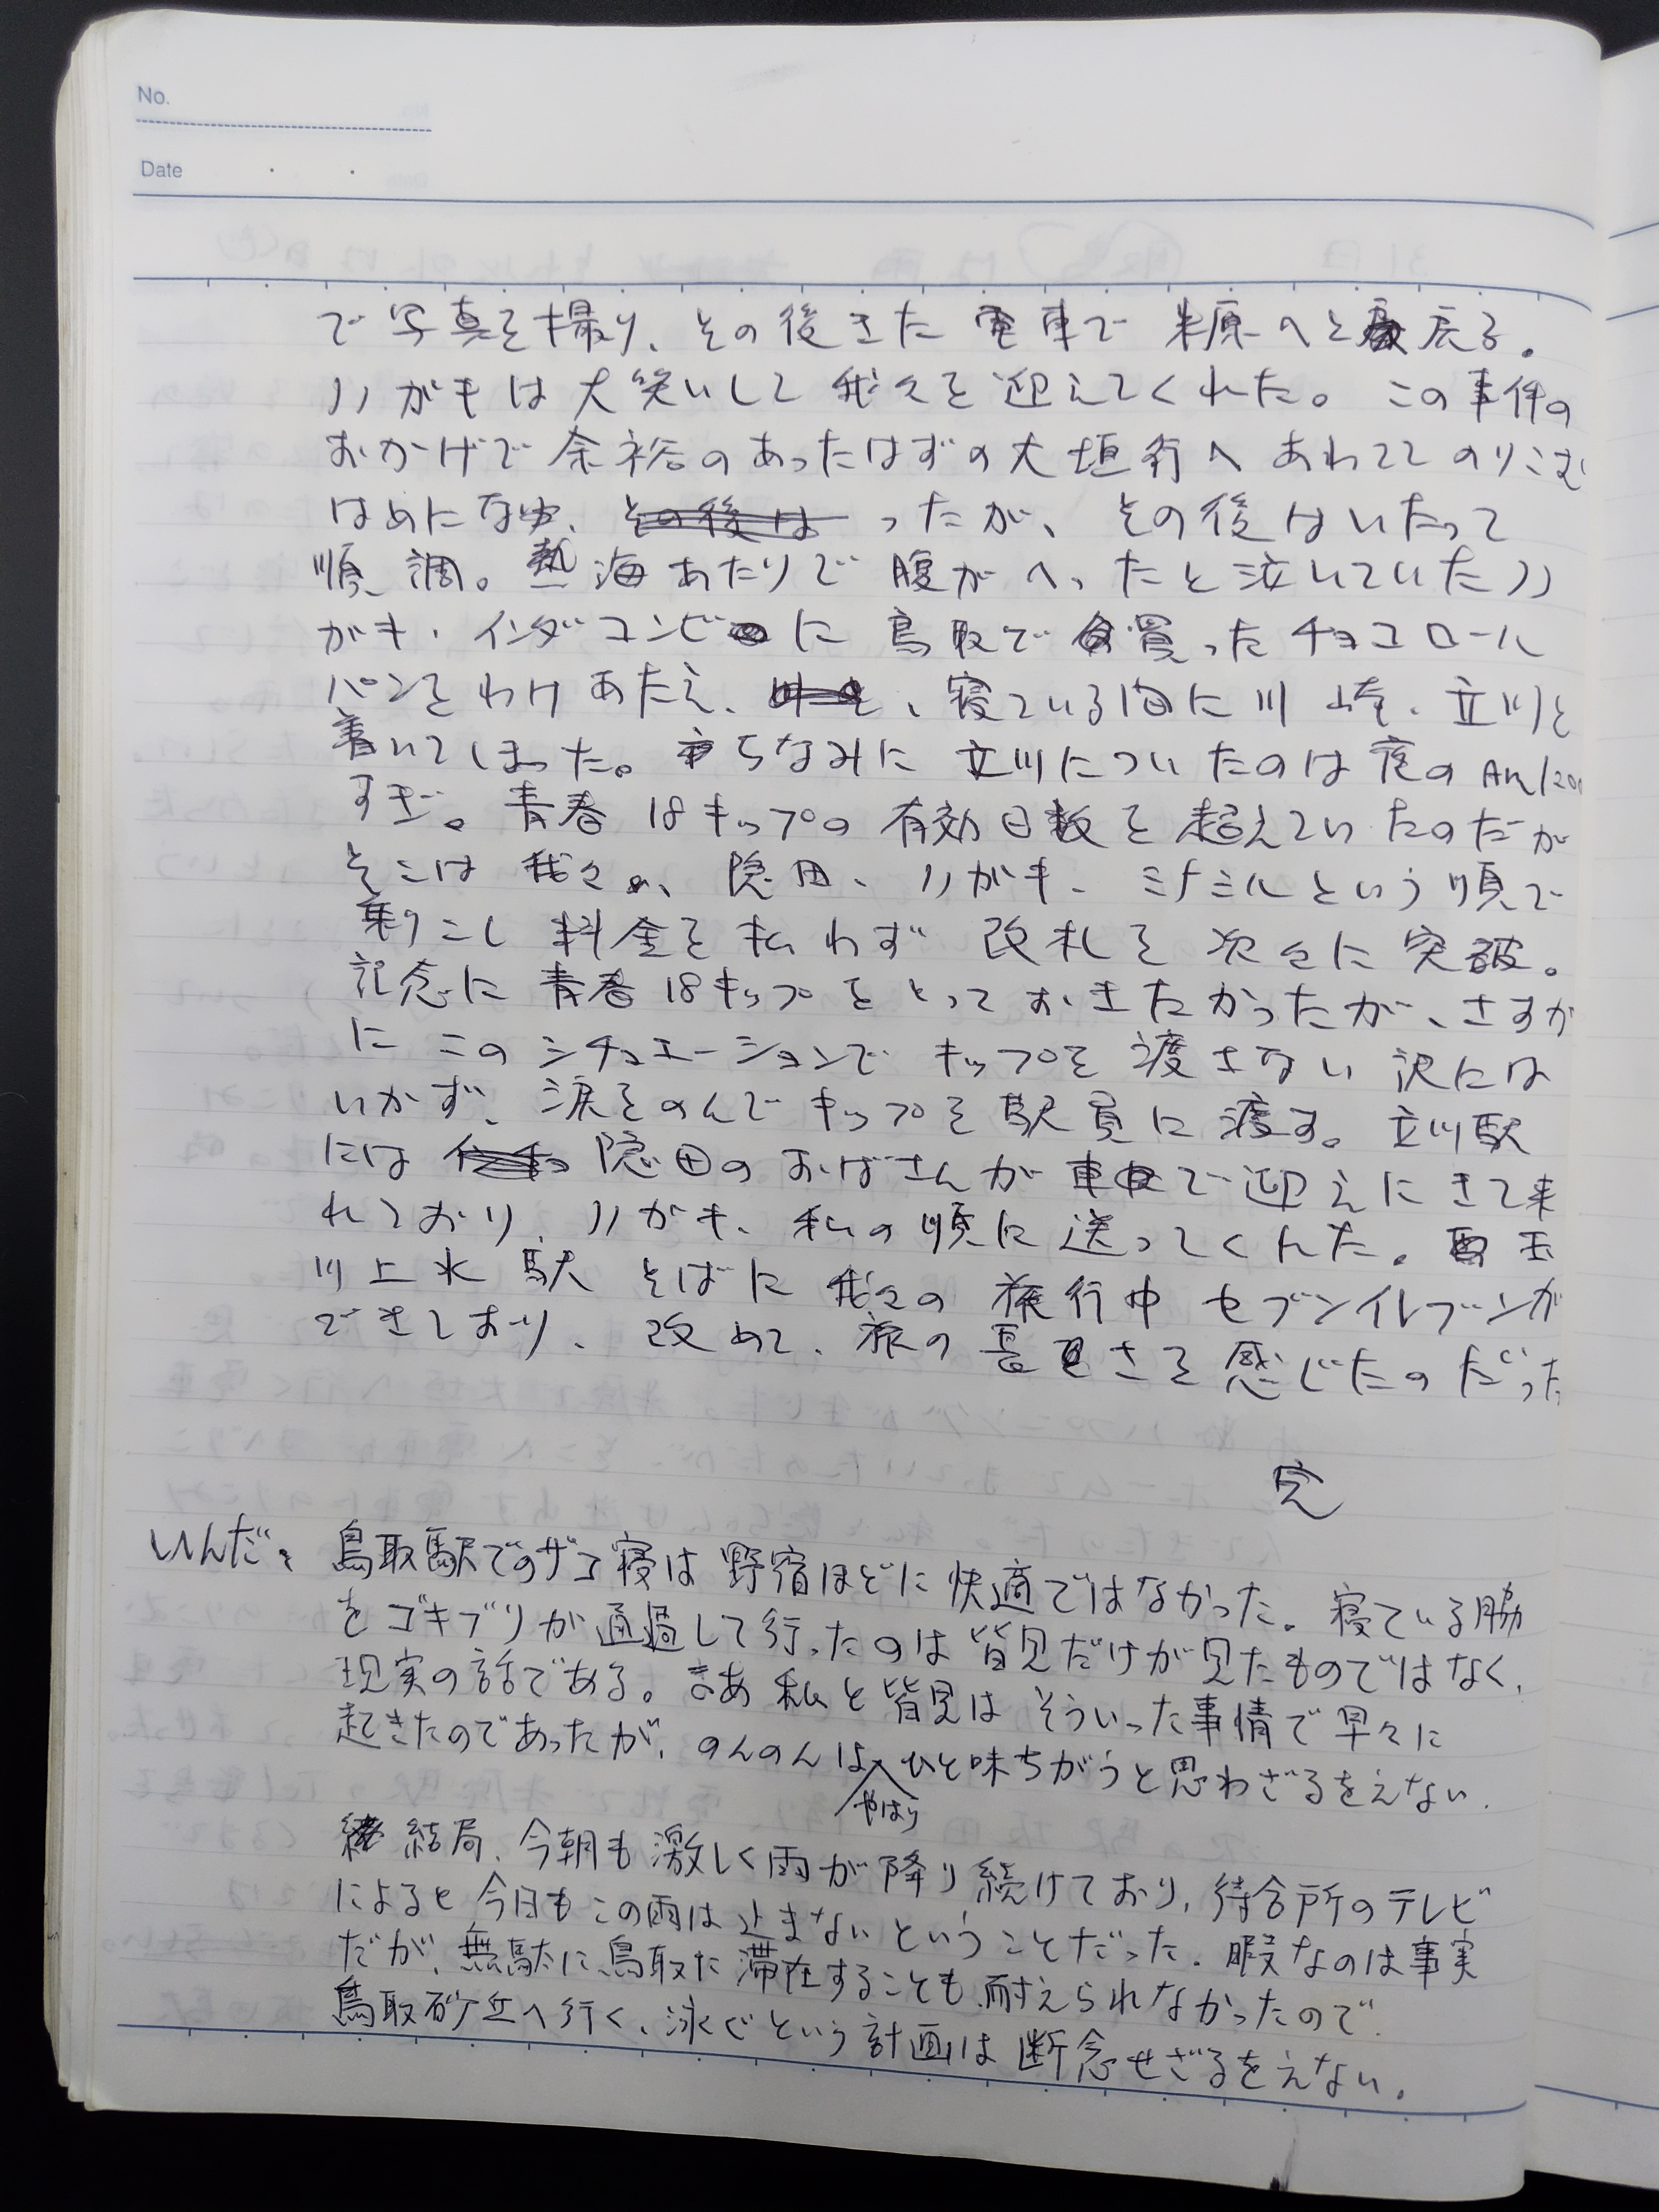 No.
Date
で写真を撮り、その後きた電車で米原へと戻る。
ハガキは大笑いして我々を迎えてくれた。この事件の
おかげで余裕のあったはずの大垣行へあわててのりこむ
はめになったが、その後はいたって
順調。熱海あたりで腹がへったと泣いていたハ
ガキ・インダコンビに鳥取で買ったチョコロール
パンをわけあたえ、寝ている間に川崎、立川と
着いてしまった。ちなみに立川についたのは夜のAM
すぎ。青春18キップの有効日数を超えていたのだが
そこは我々、隠田、ハガキ、ミナミルという順で
乗りこし料金を払わず改札を次々に突破。
記念に青春18キップをとっておきたかったが、さすが
にこのシチュエーションでキップを渡さない訳には
いかず、涙をのんでキップを駅員に渡す。立川駅
には隠田のおばさんが車で迎えにきて来
れており、ハガキ、私の順に送ってくれた。玉
川上水駅そばに我々の旅行中セブンイレブンが
できており、改めて、旅の長さを感じたのだった
完
いんだ: 鳥取駅でのザコ寝は野宿ほどに快適ではなかった。寝ている脇
をゴキブリが通過して行ったのは皆見だけが見たものではなく、
現実の話である。まあ私と皆見はそういった事情で早々に
起きたのであったが、のんのんはやはりひと味ちがうと思わざるをえない。
結局、今朝も激しく雨が降り続けており、待合所のテレビ
によると今日もこの雨は止まないということだった。暇なのは事実
だが、無駄に鳥取に滞在することも耐えられなかったので
鳥取砂丘へ行く、泳ぐという計画は断念せざるをえない。